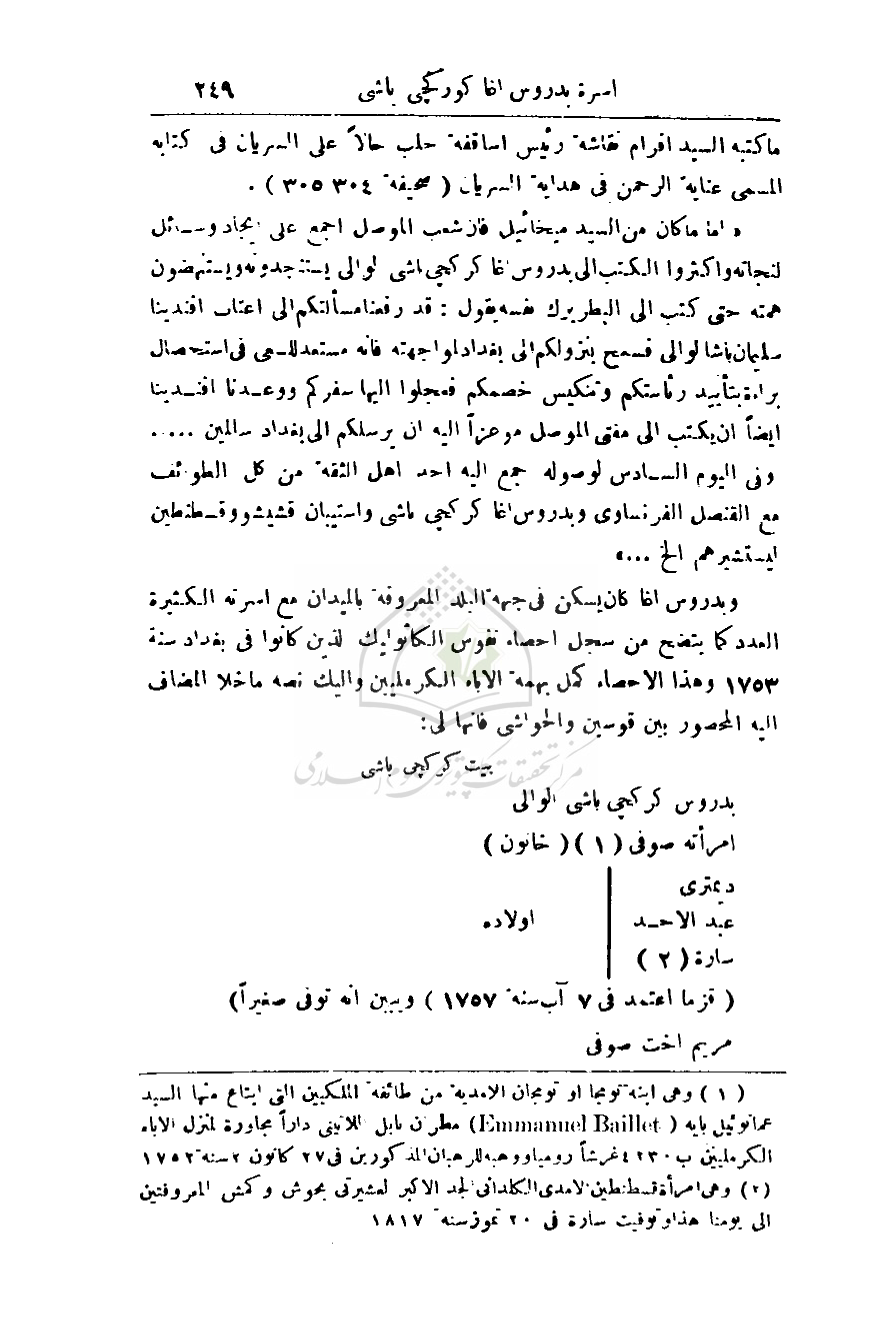 اسرة بدروس اغا كوركجي باشي ٢٤٩
ماكتبه السيد افرام نقاشه رئيس اساقفة حلب حالاً على السريان في كتابه
المسمى عناية الرحمن في هداية السريان ( صحيفة ٣٠٤ ٣٠٥ ) .
« اما ماكان من السيد ميخائيل فان شعب الموصل اجمع على ايجاد وسائل
لنجاته واكثروا الكتب الى بدروس اغا كركجي باشي لوالي يستنجدونه ويستنهضون
همته حتى كتب الى البطريرك نفسه يقول : قد رفعنا مسألتكم الى اعتاب افندينا
سليمان باشا لوالي فسمح بنزولكم الى بغداد لمواجهته فانه مستعد للسعي في استحصال
براءة بتأييد رئاستكم وتنكيس خصمكم فعجلوا اليها سفركم ووعدنا افندينا
ايضاً ان يكتب الى مفتي الموصل موعزاً اليه ان يرسلكم الى بغداد سالمين .....
وفي اليوم السادس لوصوله جمع اليه احد اهل الثقة من كل الطوائف
مع القنصل الفرنساوي وبدروس اغا كركجي باشي واستيبان قشيشو وقسطنطين
ليستشيرهم الخ ...»
وبدروس اغا كان يسكن في جهة البلد المعروفة بالميدان مع اسرته الكثيرة
العدد كما يتضح من سجل احصاء نفوس الكاثوليك لذين كانوا في بغداد سنة
١٧٥٣ وهذا الاحصاء كمل بهمة الاباء الكرمليين واليك نصه ماخلا المضاف
اليه المحصور بين قوسين والحواشي فانها لي:
مركز تحقيقات كامپيوتري علوم اسلامي
بيت كركجي باشي
بدروس كركجي باشي الوالي
امرأته صوفي ( ١ ) ( خاتون )
ديمتري
عبد الاحد اولاده
سارة ( ٢ )
( قزما اعتمد في ٧ آب سنة ١٧٥٧ ) ويبين انه توفي صغيراً)
مريم اخت صوفي
( ١ ) وهي ابنة تومجا او تومجان الامدية من طائفة الملكيين التي ابتاع منها السيد
عمانوئيل بايه ( Emmanuel Baillet) مطران بابل اللاتيني داراً مجاورة لمنزل الاباء
الكرمليين ب ٤٢٣٠ غرشاً روميا ووهبه للرهبان المذكورين في ٢٧ كانون ٢ سنة ١٧٥٢
(٢) وهي امرأة قسطنطين لامدي الكلداني لجد الاكبر لعشيرتي بحوش وكمش المعروفتين
الى يومنا هذا وتوفيت سارة في ٢٠ تموز سنة ١٨١٧